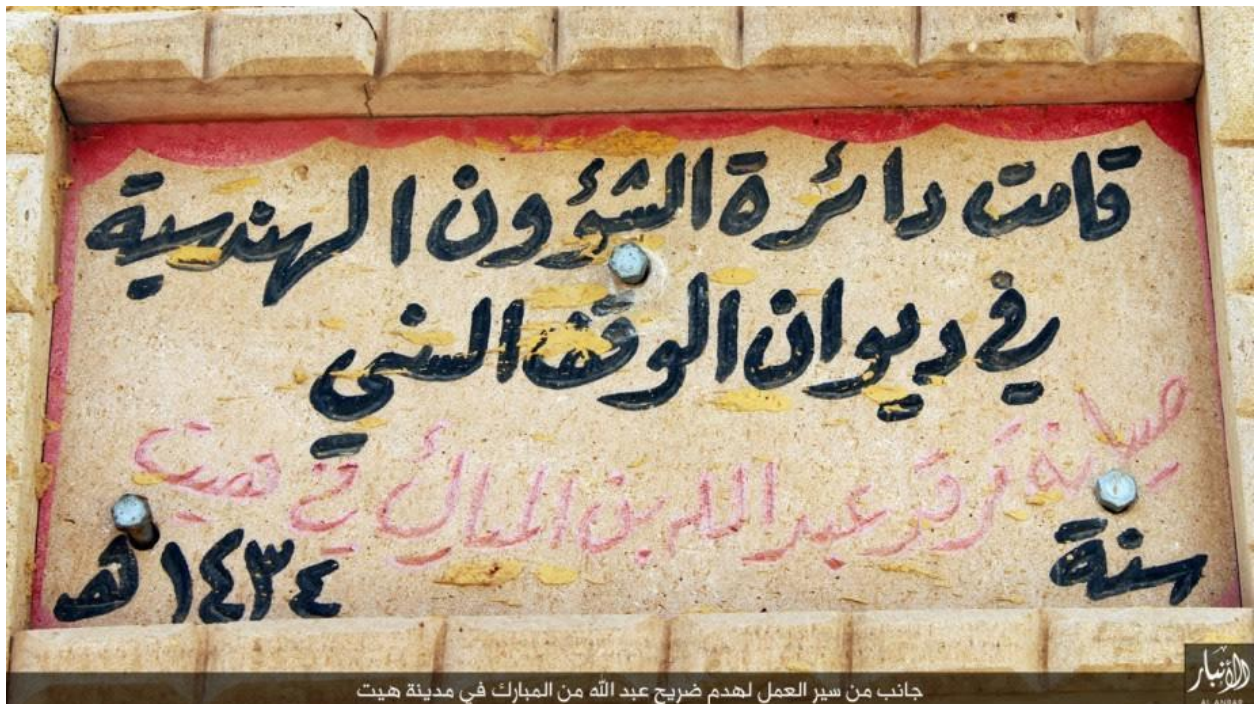 قامت دائرة الشؤون الهندسية
في ديوان الوقف السني
صيانة مرقد عبدالله بن المبارك في هيت
سنة ١٤٣٤هـ
جانب من سير العمل لهدم ضريح عبد الله من المبارك في مدينة هيت
الأنبار
AL ANBAR